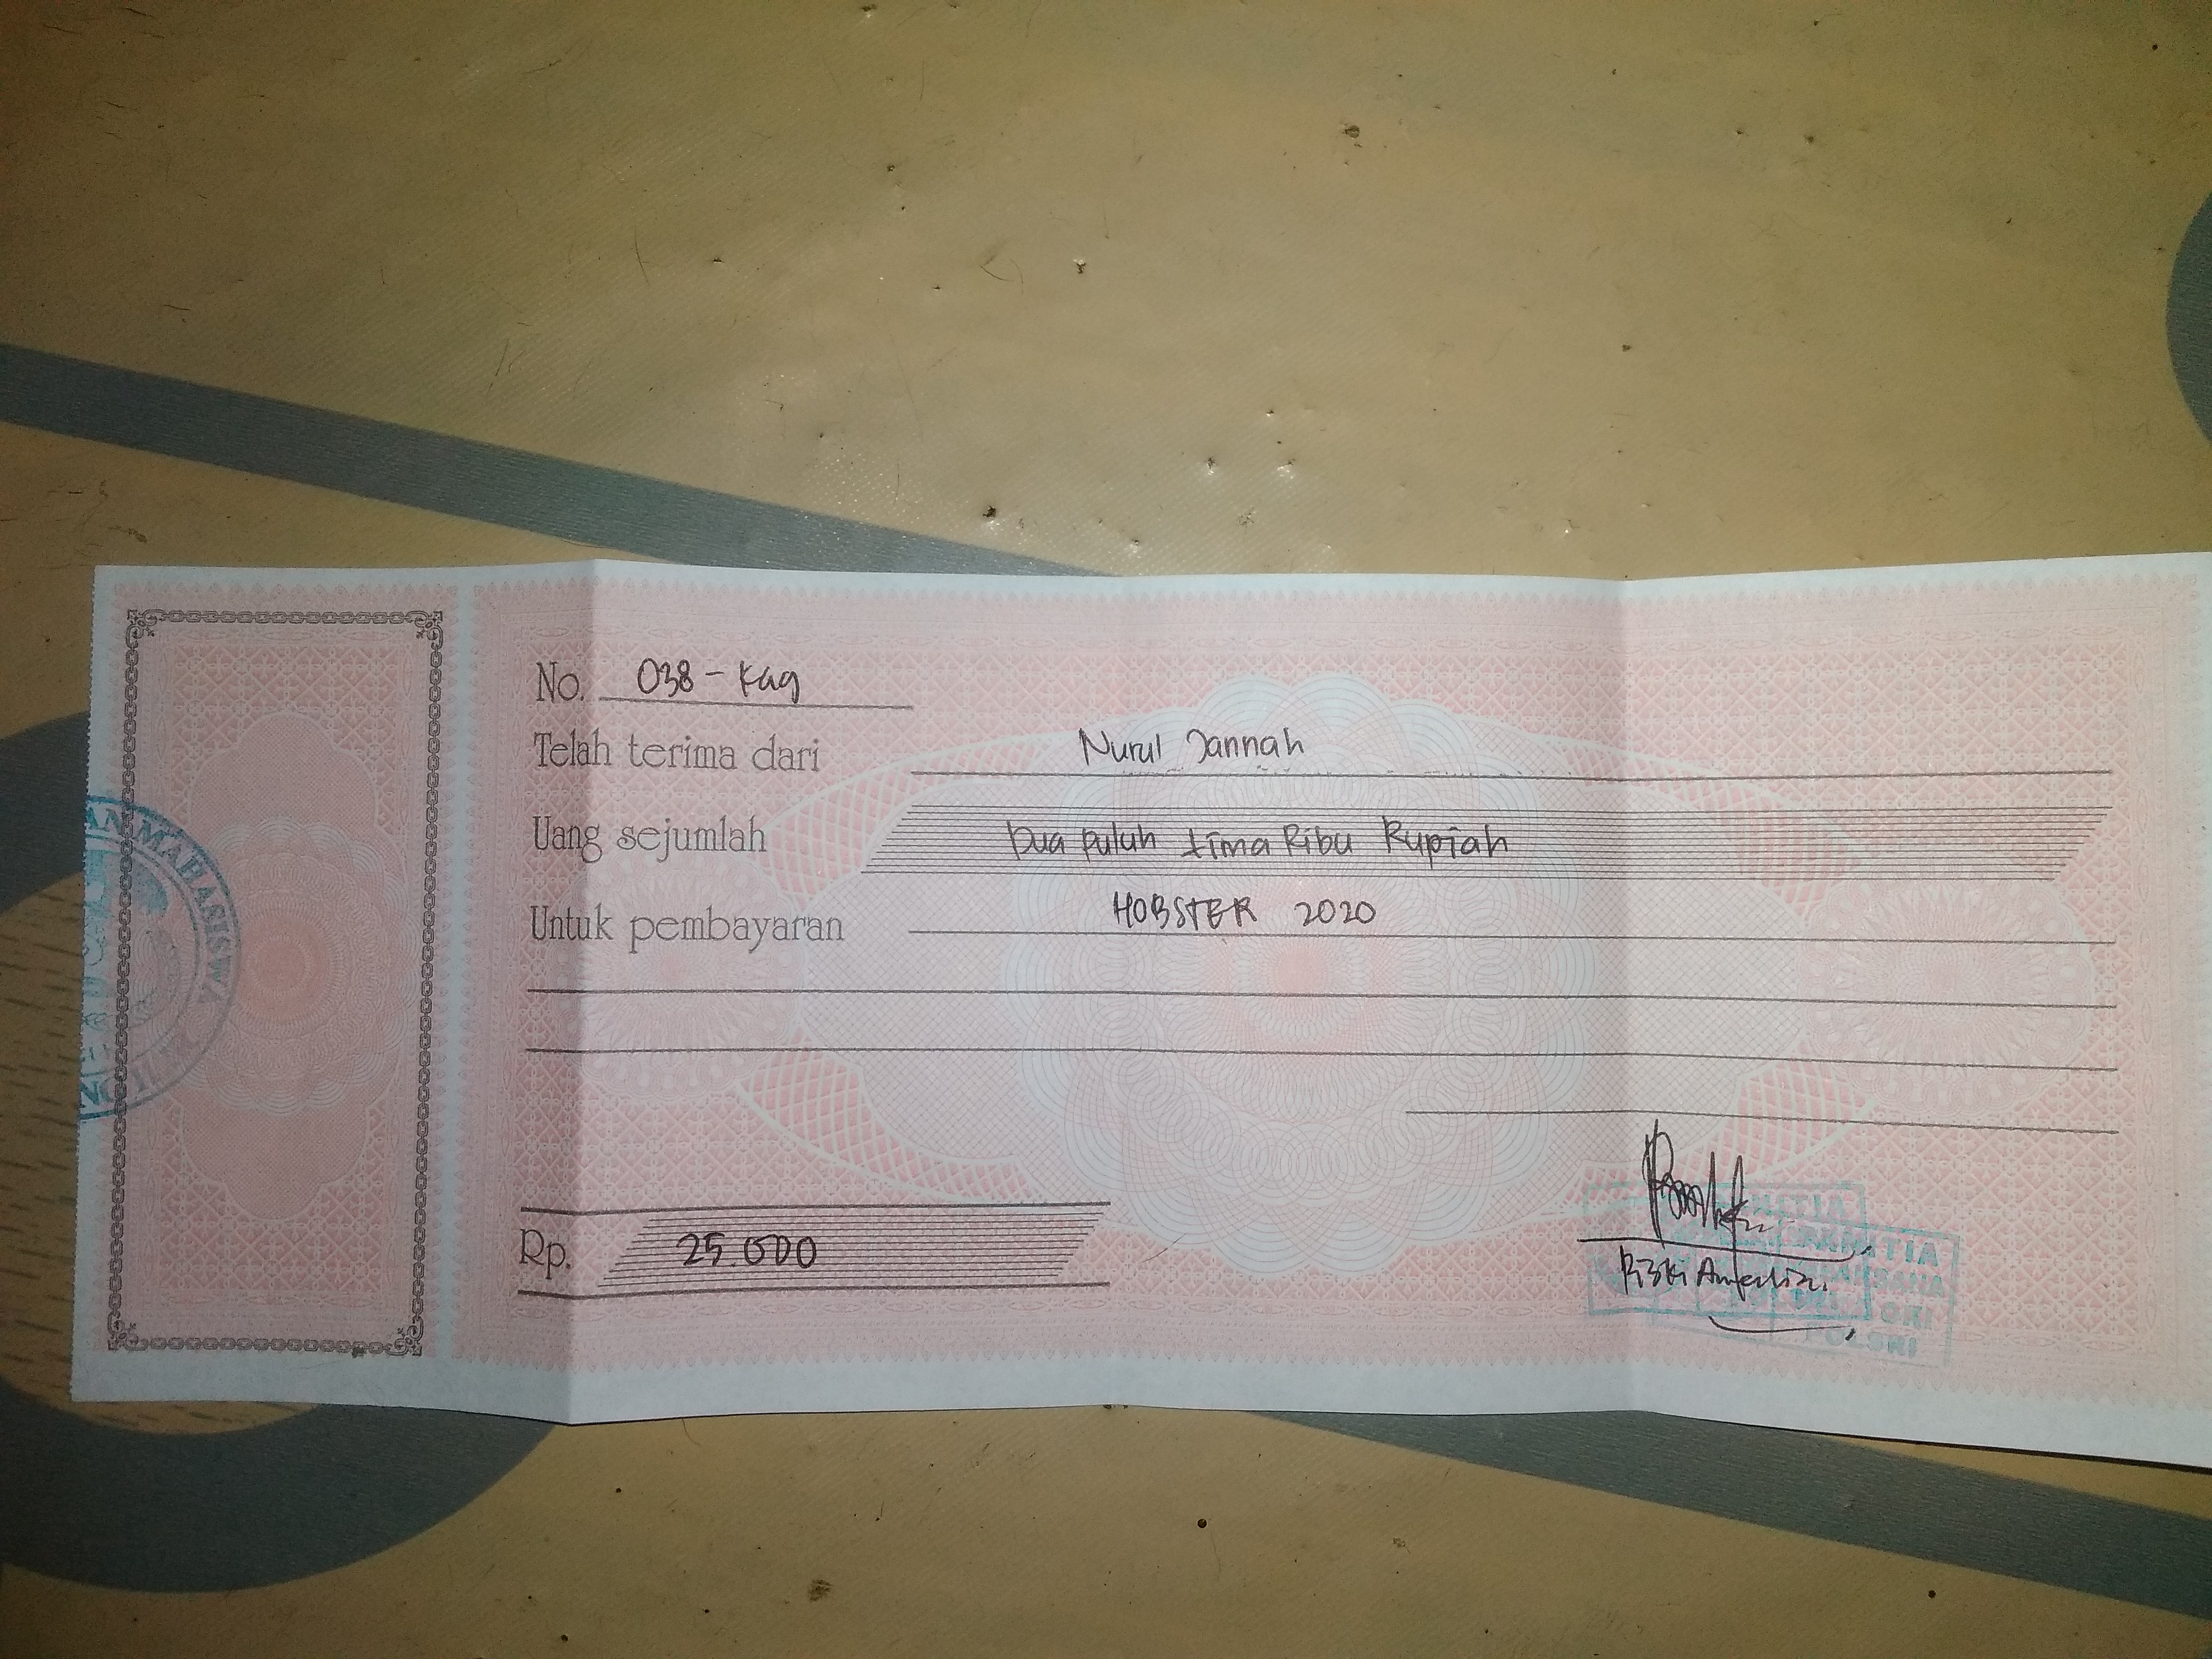 No. 038 - Kag
Telah terima dari Nurul Jannah
Uang sejumlah Dua puluh Lima Ribu Rupiah
Untuk pembayaran HOBSTER 2020
Rp. 25.000
MAHASISWA
PANITIA
POLSRI